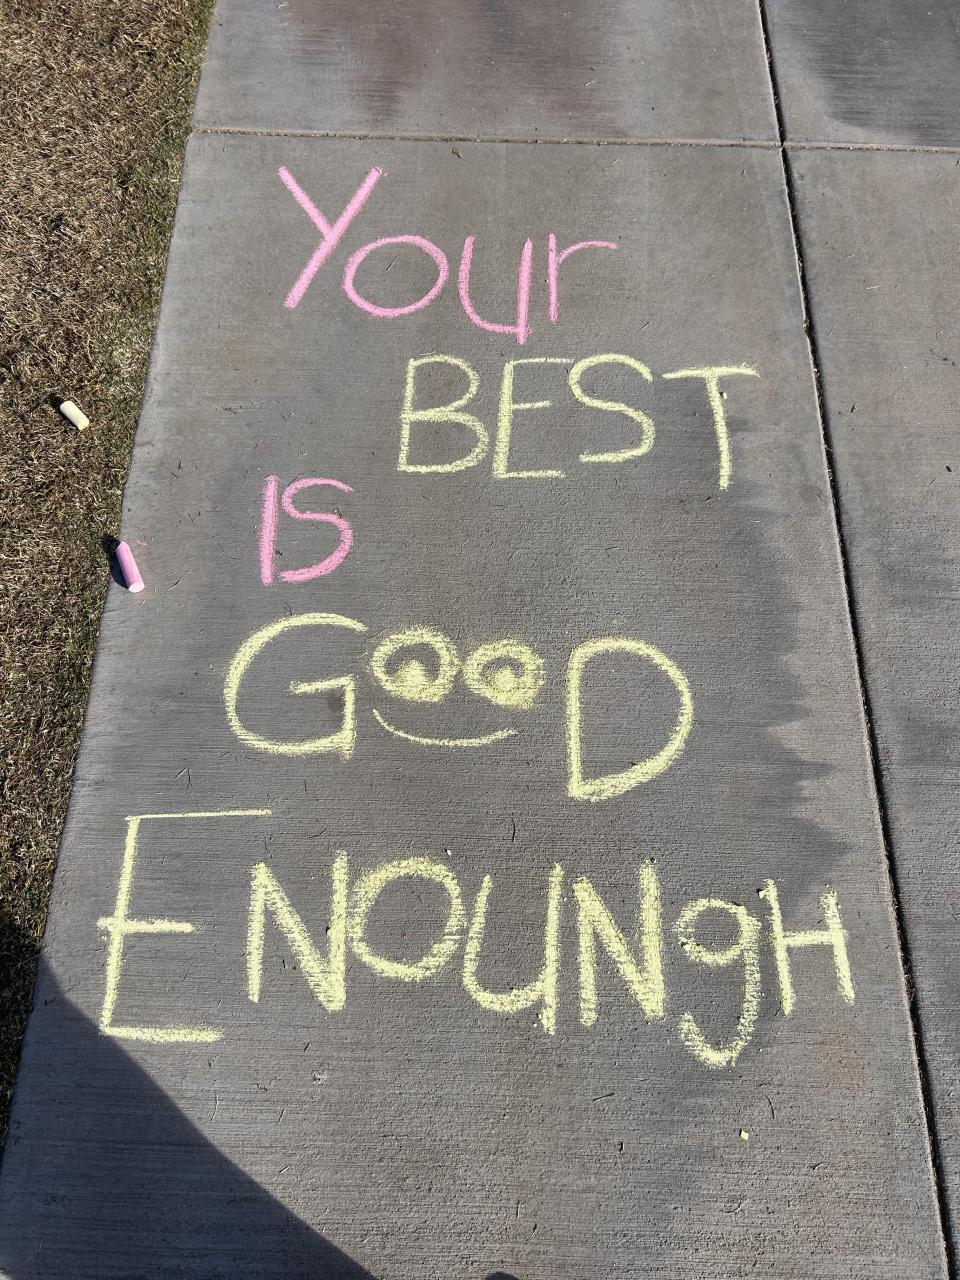 Your
BEST
IS
GooD
ENOUNgH